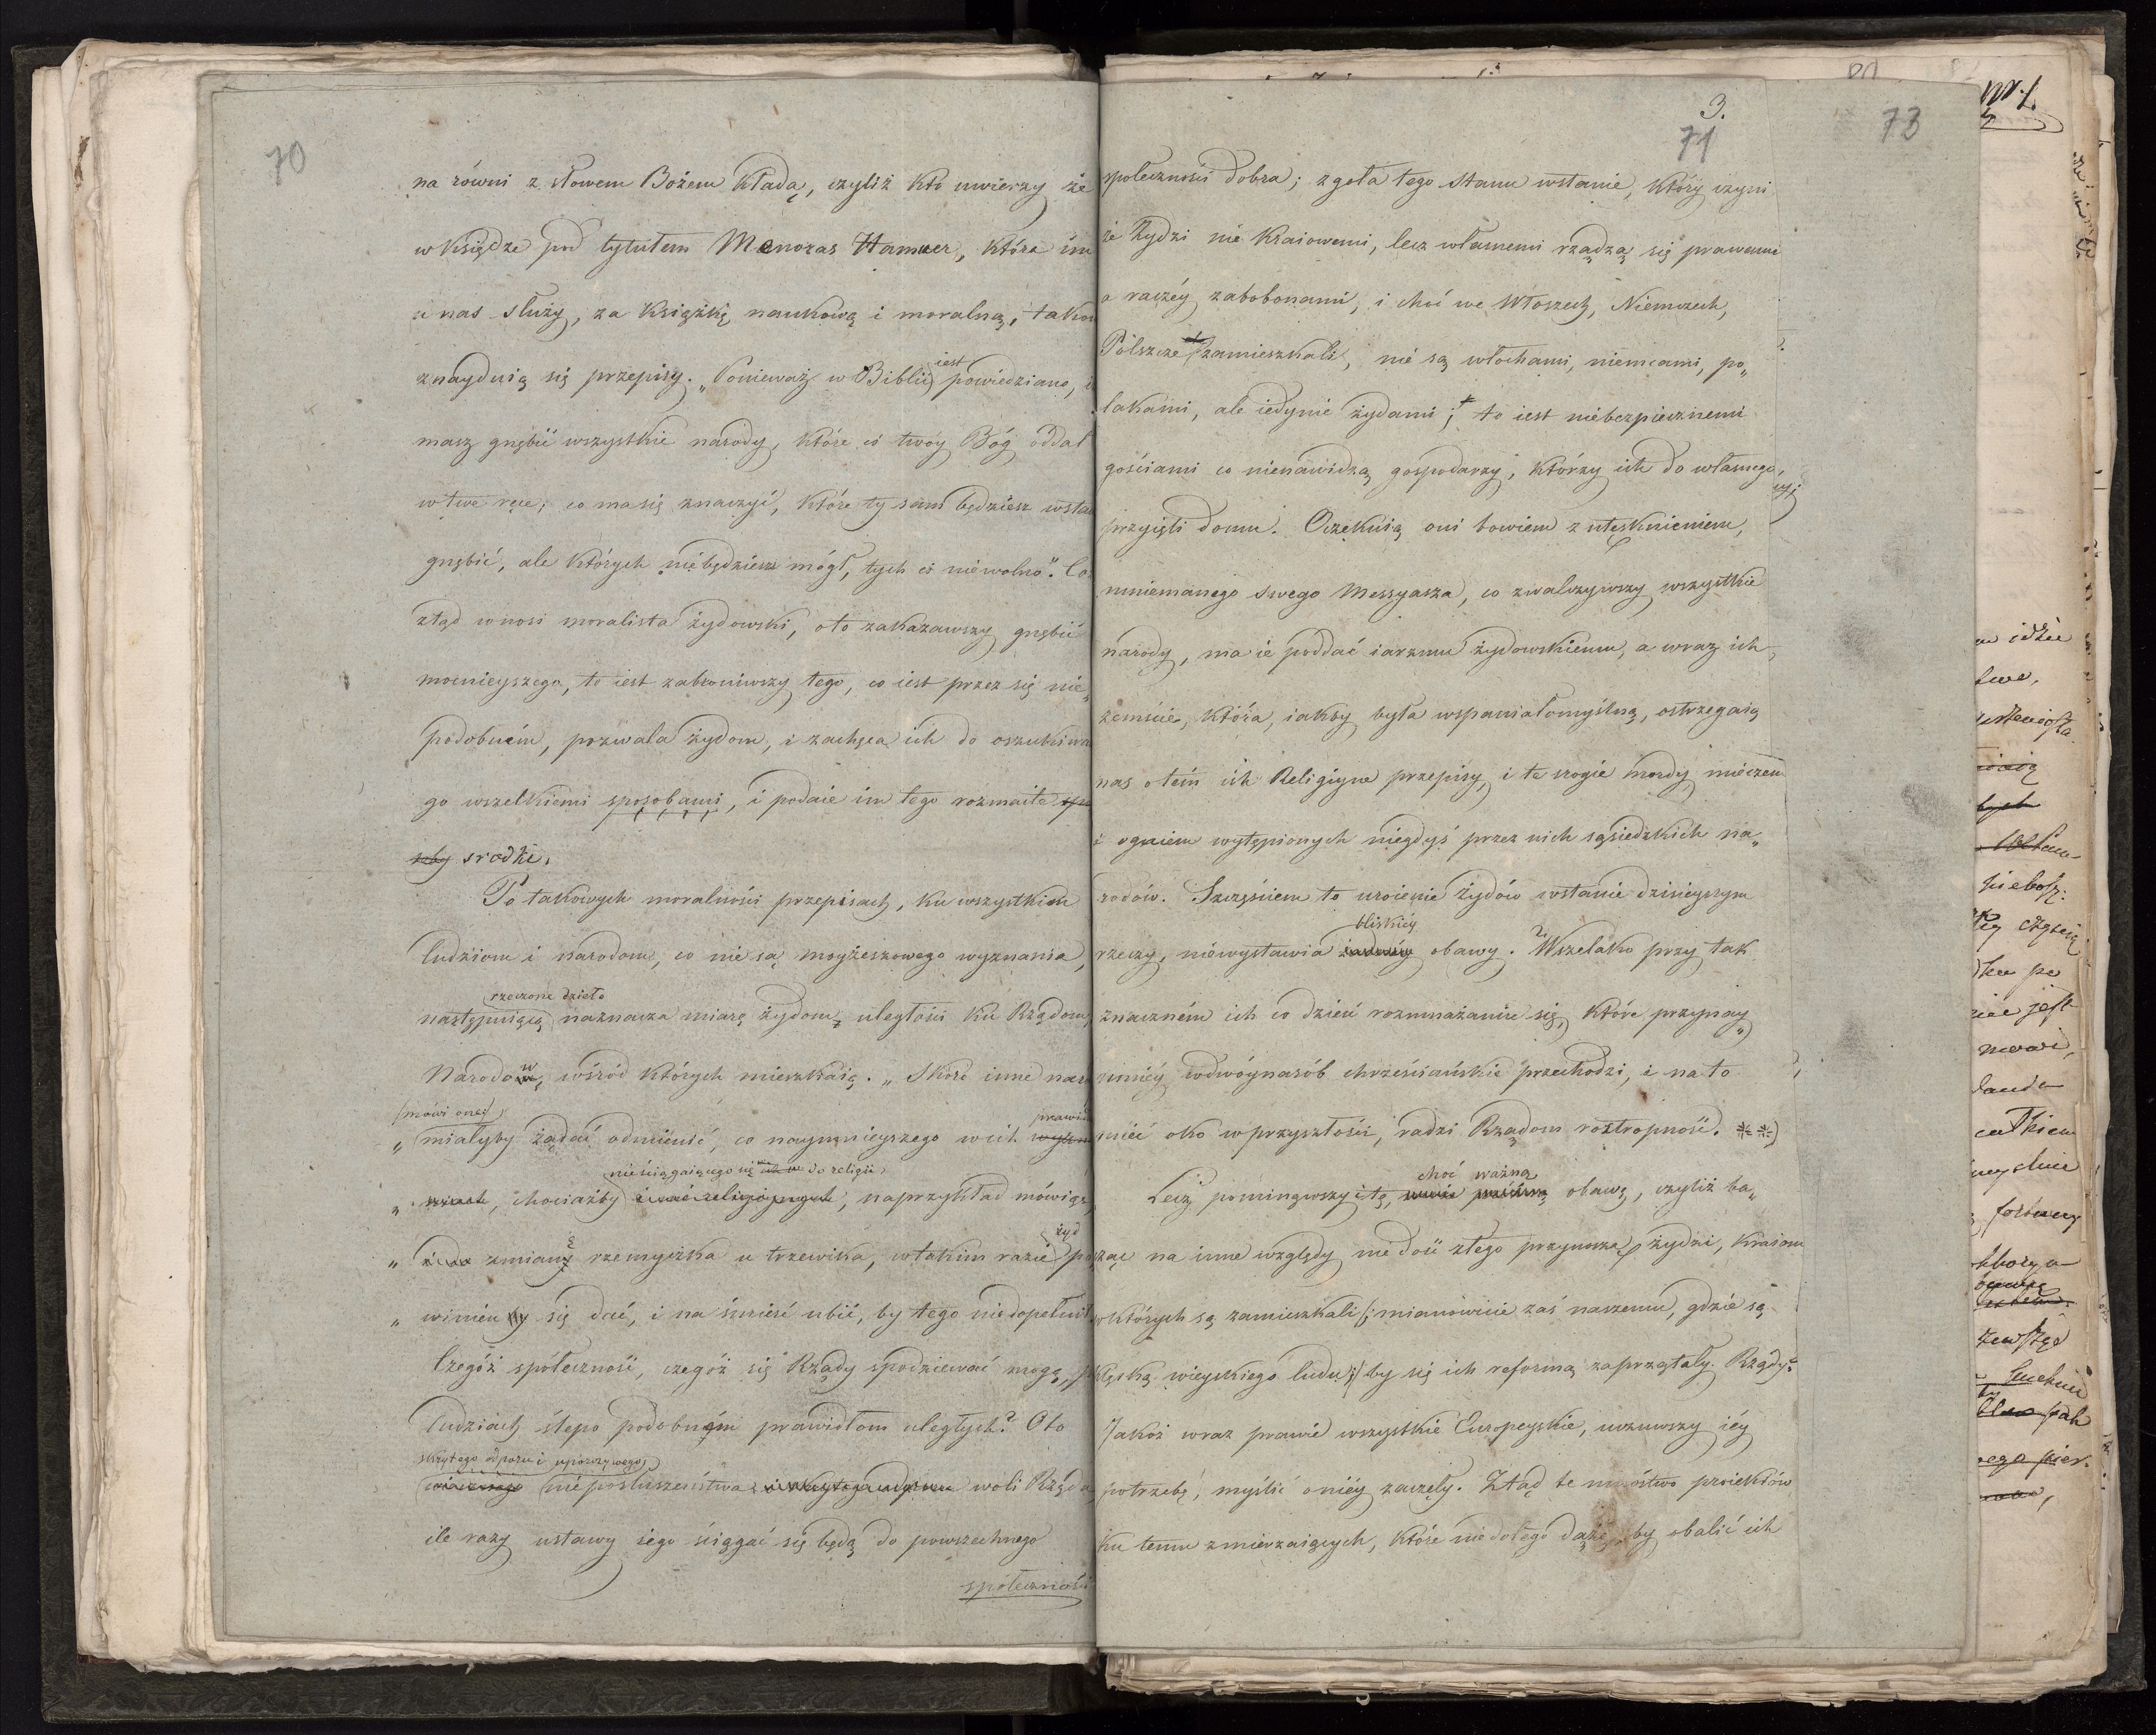 70
na równi z słowem Bożem kładą, czyliż kto uwierzy że
w księdze pod tytułem Menoras Hamaer, która im
u nas służy, za książkę naukową i moralną, takow
znayduią się przepisy. „Ponieważ w Biblii iest powiedziano,
masz gnębić wszystkie narody, które ci twóy Bóg oddał
w twe ręce; co ma się znaczyć, które ty sam będziesz wstan
gnębić, ale których niebędziesz mógł, tych ci niewolno". Co
ztąd wnosi moralista żydowski, oto zakazawszy gnębić
mocnieyszego, to iest zabroniwszy tego, co iest przez się nie„
podobném, pozwala żydom, i zachęca ich do oszukiwa
go wszelkiemi sposobami, i podaie im tego rozmaite spo
soby srodki.
Po takowych moralności przepisach, ku wszystkim
ludziom i narodom, co nie są moyżeszowego wyznania,
rzeczone dzieło
następuiącą naznacza miarę żydom, uległości ku Rządom,
Narodow, wśród których mieszkaią. „Skoro inne naro
(mówi one) prawid
„ miałyby żądać odmienić, co naymnieyszego w ich
nieściągaiącego się do religii
„ chociażby religijnych, naprzykład mówiąc,
żyd
„ zmianę rzemyczka u trzewika, w takim razie po
„ winien by się dać, i na śmierć ubić, by tego niedopełnił
Czegóż społeczność, czegóż się Rządy spodziewać mogą, p
ludziach ślepo podobnym prawidłom uległych? Oto
skrytego odporu i uporczywego
nieposłuszeństwa i skrytego odporu woli Rządu
ile razy ustawy iego ściągać się będą do powszechnego
społeczności
3.
71
społeczności dobra; zgoła tego stanu wstanie, który czyni
że Żydzi nie kraiowemi, lecz własnemi rządzą się prawami
a raczéy zabobonami, i choć we Włoszech, Niemczech,
Polszcze zamieszkali, nie są włochami, niemcami, po„
lakami, ale iedynie żydami; to iest niebezpiecznemi
gościami co nienawidzą gospodarzy, którzy ich do własnego,
przyięli domu. Oczekuią oni bowiem z utęsknieniem,
mniemanego swego Messyasza, co zwalczywszy wszystkie
narody, ma ie poddać iarzmu żydowskiemu, a wraz ich
zemście, która, iakby była wspaniałomyślną, ostrzegaią
nas o tém ich Religiyne przepisy, i te srogie mordy, mieczem
i ogniem wytępionych niegdyś przez nich sąsiedzkich na„
rodów. Szczęściem to uroienie żydów wstanie dzisieyszym
bliskiéy
rzeczy, niewystawia żadnéy obawy. Wszelako przy tak
znaczném ich co dzień rozmnażaniu się, które przynay„
mniéy wdwóynasób chrześciańskie przechodzi, i na to
mieć oko w przyszłości, radzi Rządom roztropność. **)
choć ważną
Lecz pominąwszy i tę, obawę, czyliż ba„
cząc na inne względy nie dość złego przynoszą żydzi, kraiom
w których są zamieszkali (mianowicie zaś naszemu, gdzie są
klęską wieyskiego ludu;) by się ich reformą zaprzątały Rządy?
Jakoż wraz prawie wszystkie Europeyskie, uczuwszy iéy
potrzebę, myślić oniéy zaczęły. Ztąd te mnóstwo proiektów
ku temu zmierzaiących, które niedołego dążą, by obalić ich
73